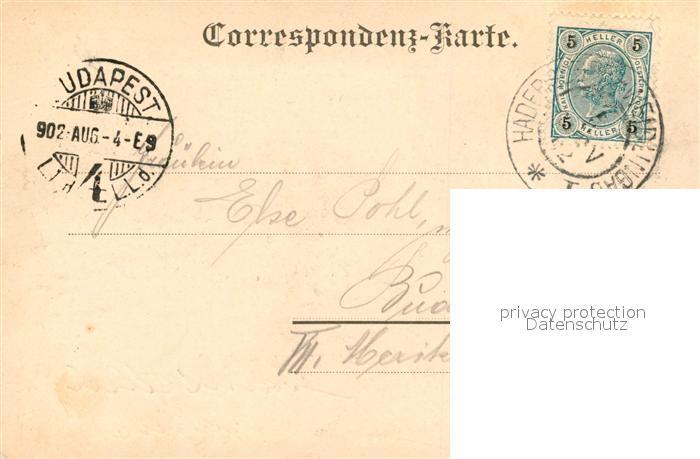 Correspondenz-Karte.
5 HELLER 5
5 HELLER 5
UDAPEST
902-AUG.-4-E9
4
HADER
Fräulein
Else Pohl,
Bud
III.
privacy protection
Datenschutz